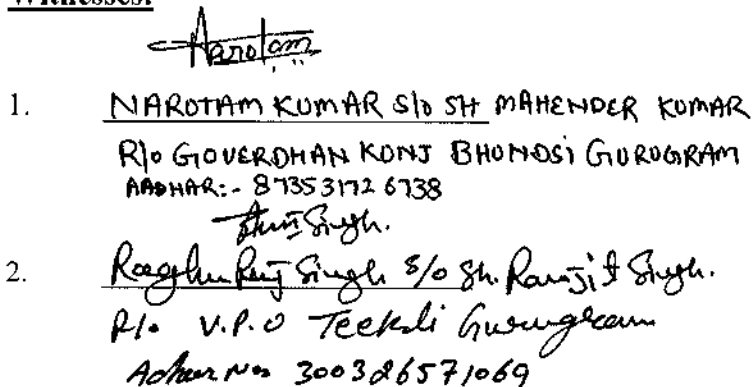 Witnesses:
Narotam
1. NAROTAM KUMAR S/o SH MAHENDER KUMAR
R/o GOVERDHAN KUNJ BHONDSi GURUGRAM
AADHAR:- 873531726738
Singh.
2. Raghu Raj Singh S/o Sh. Ranjit Singh.
R/o V.P.O Teekli Gurugram
Adhar No 300326571069